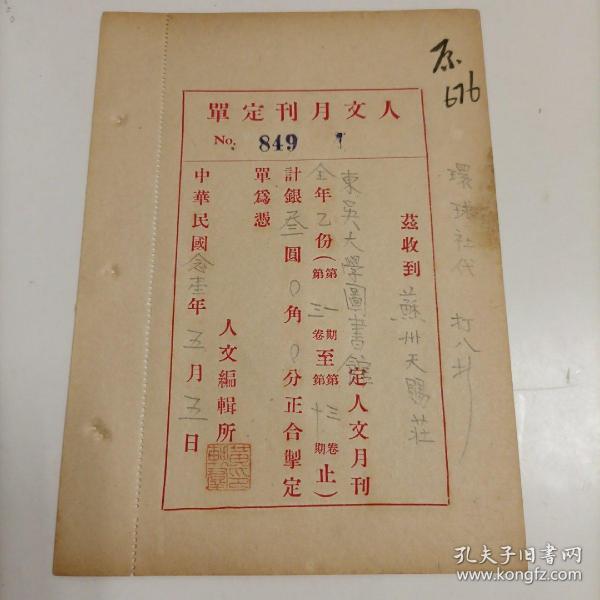 原
676
人文月刊定單
No. 849
環球社代 打八折
茲收到蘇州天賜莊
東吳大學圖書館定人文月刊
全年乙份(第三卷第一期至第三卷第十期止)
計銀叁圓0角0分正合掣定
單爲憑
人文編輯所
中華民國念壹年五月五日
孔夫子旧书网
www.kongfz.com